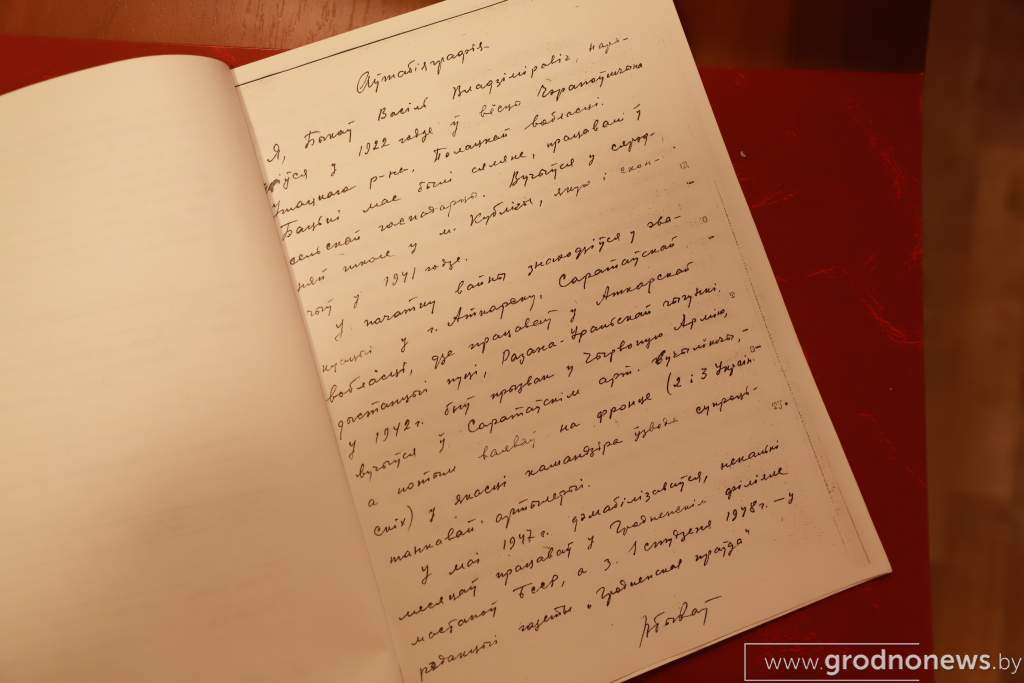 Аўтабіяграфія
Я, Быкаў Васіль Уладзіміравіч, нара-
дзіўся ў 1922 годзе ў вёсцы Чарапоўшчына
Ушацкага р-на, Полацкай вобласці.
Бацькі мае былі сяляне, працавалі ў
сельскай гаспадарцы. Вучыўся ў сярэд-
няй школе у м. Кублічы, якую і скон-
чыў у 1941 годзе.
У пачатку вайны знаходзіўся у эва-
куацыі у г. Аткарску, Саратаўскай
вобласці, дзе працаваў у Аткарскай
дыстанцыі пуці, Разана-Уральскай чыгункі.
У 1942 г. быў прызван у Чырвоную Армію,
вучыўся ў Саратаўскім арт. вучылішчы,
а потым ваяваў на фронце (2 і 3 Украін-
скіх) у якасці камандзіра ўзвода супроць-
танкавай артылерыі.
У маі 1947 г. дэмабілізаваўся, некалькі
месяцаў працаваў у Гродненскім філіяле
мастакоў БССР, а з 1 студзеня 1948 г. – у
рэдакцыі газеты „Гродненская праўда"
ВБыкаў
www.grodnonews.by